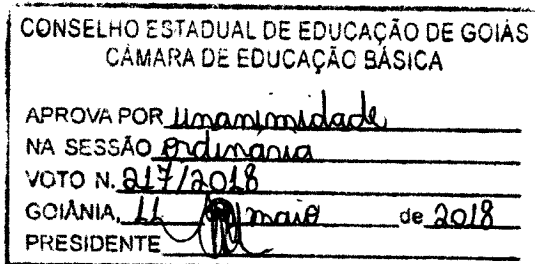 CONSELHO ESTADUAL DE EDUCAÇÃO DE GOIÁS
CÂMARA DE EDUCAÇÃO BÁSICA
APROVA POR unanimidade
NA SESSÃO ordinaria
VOTO N. 217/2018
GOIÂNIA, 11 maio de 2018
PRESIDENTE